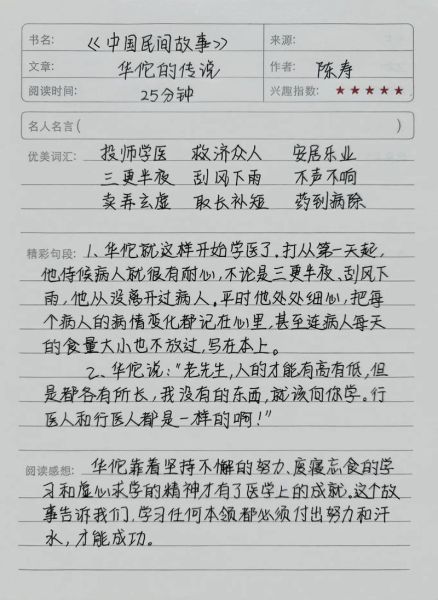 书名: 《中国民间故事》 来源:
文章: 华佗的传说 作者: 陈寿
阅读时间: 25分钟 兴趣指数: ★★★★★
名人名言( )
优美词汇: 投师学医 救济众人 安居乐业
三更半夜 刮风下雨 不声不响
卖弄玄虚 取长补短 药到病除
精彩句段: 1、华佗就这样开始学医了。打从第一天起,
他侍候病人就很有耐心,不论是三更半夜、刮风下
雨,他从没离开过病人。平时他处处细心,把每
个病人的病情变化都记在心里,甚至连病人每天
的食量大小也不放过,写在本上。
2、华佗说:"老先生,人的才能有高有低,但
是都各有所长,我没有的东西,就该向你学。行
医人和行医人都是一样的啊!"
阅读感想: 华佗靠着坚持不懈的努力、废寝忘食的学
习和虚心求学的精神才有了医学上的成就。这个故
事告诉我们,学习任何本领都必须付出努力和汗
水,才能成功。